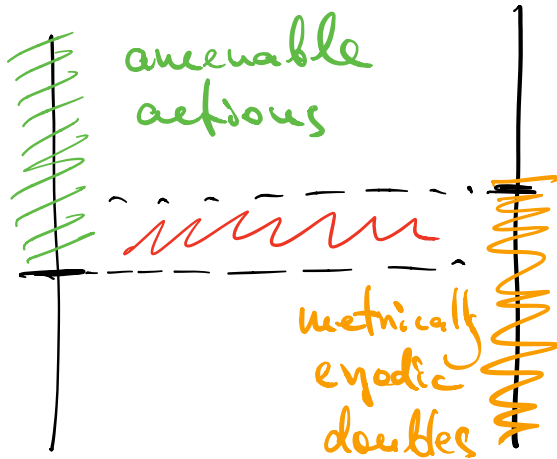 amenable
actions
metrically
ergodic
doubles